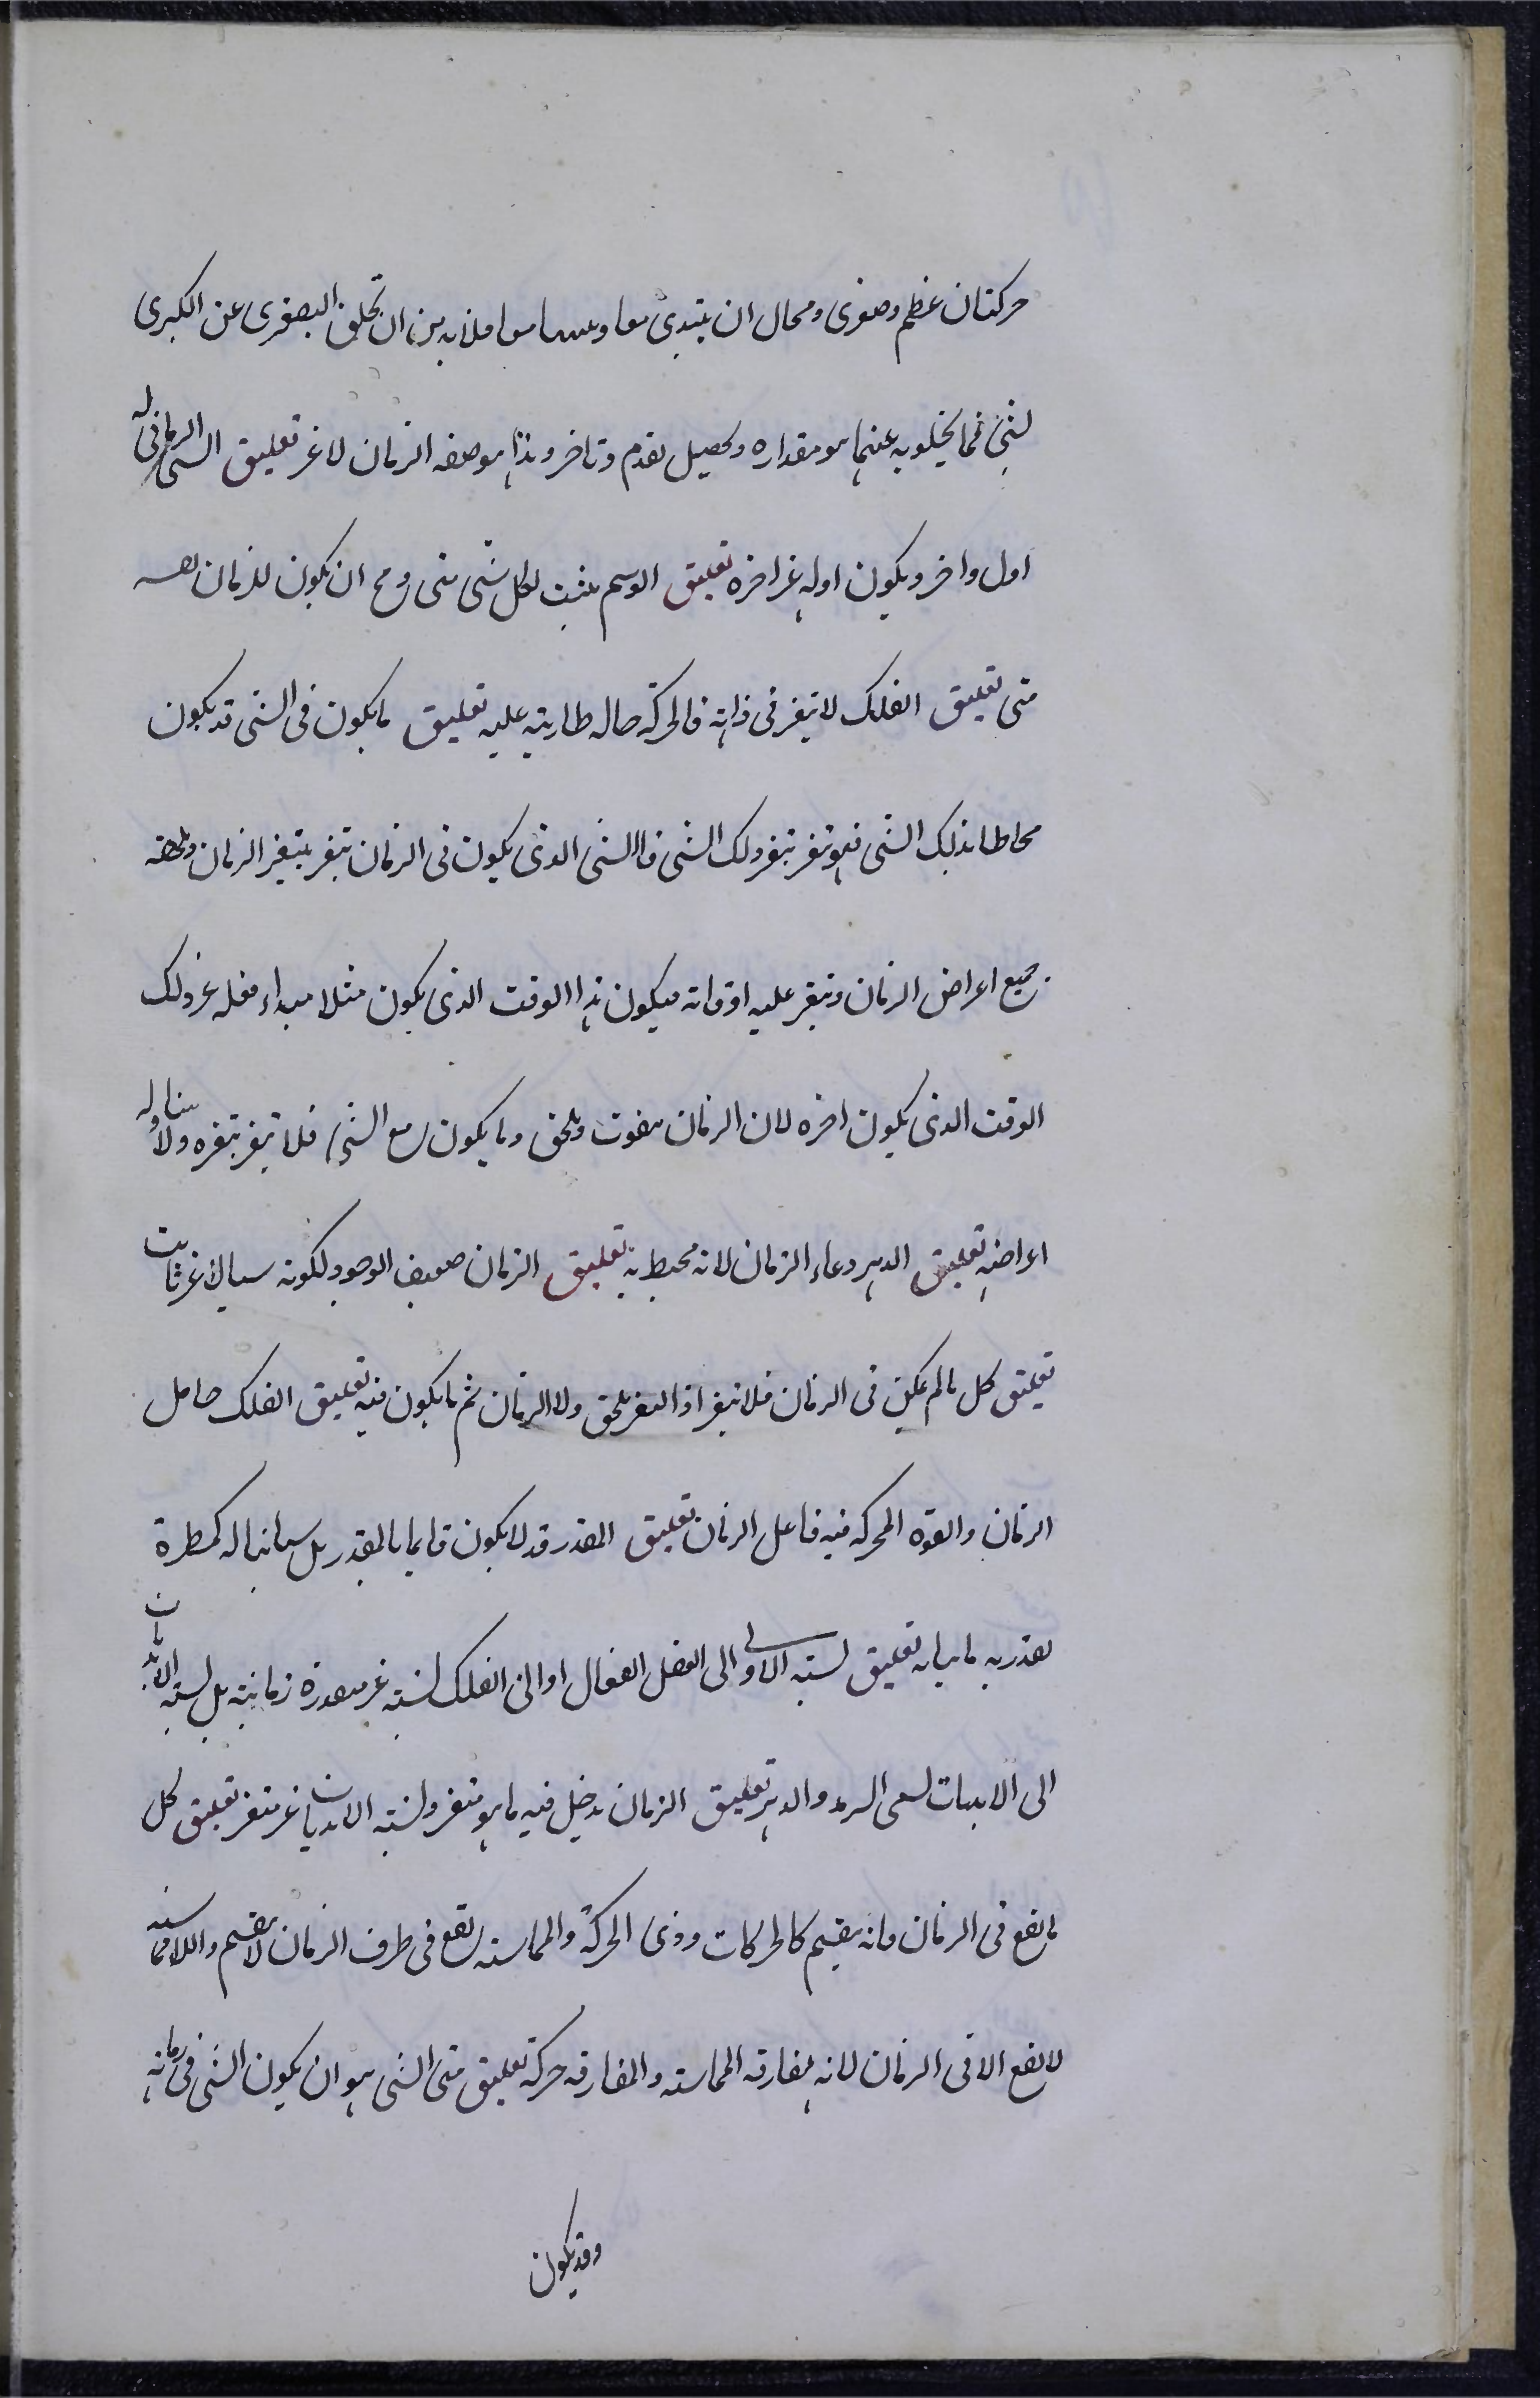 حركتان عظم وصغرى ومحال ان يبتدئ معا و معا فلا بد من ان تخلف الصغرى عن الكبرى
لشئ فما يخلو به عنهما هو مقداره ويحصل تقدم وتاخر وهذا هو صفه الزمان لا غير تعليق الشى الزمانى له
اول واخر ويكون اوله غير اخره تعليق الوهم يثبت لكل شى متى ومح ان يكون للزمان نفسه
متى تعليق الفلك لا يتغير فى ذاته فالحركة حاله طاريه عليه تعليق ما يكون فى الشى قد يكون
محاطا بذلك الشى فهو يتغير بتغير ذلك الشى فالشى الذى يكون فى الزمان يتغير بتغير الزمان ويلحقه
جميع اعراض الزمان ويتغير عليه اوقاته فيكون هذا الوقت الذى يكون مثلا مبداء فعله غير ذلك
الوقت الذى يكون اخره لان الزمان يفوت ويلحق وما يكون مع الشئ فلا يتغير بتغيره ولا يتناوله
اعراضه تعليق الدهر وعاء الزمان لانه محيط به تعليق الزمان ضعيف الوجود لكونه سيالا غير ثابت
تعليق كل ما لم يكن فى الزمان فلا يتغير اذ التغير يلحق ولا الزمان ثم ما يكون فيه تعليق الفلك حامل
الزمان والقوه المحركه فيه فاعل الزمان تعليق المقدر قد لا يكون قايما بالمقدر بل مباينا له كمسطرة
تقدر به ما يباينه تعليق نسبه الاولى الى العقل الفعال او الى الفلك نسبة غير متقدرة زمانية بل نسبة الابديات
الى الابديات تسمى السرمد والدهر تعليق الزمان يدخل فيه ما هو متغير ونسبة الابديات غير متغير تعليق كل
ما يقع فى الزمان فانه ينقسم كالحركات وذوى الحركة والمماسه تقع فى طرف الزمان لا ينقسم واللامماسه
لا يقع الا فى الزمان لانه مفارقه المماسه والمفارقه حركة تعليق متى الشى هو ان يكون الشى فى زمانه
وقد يكون